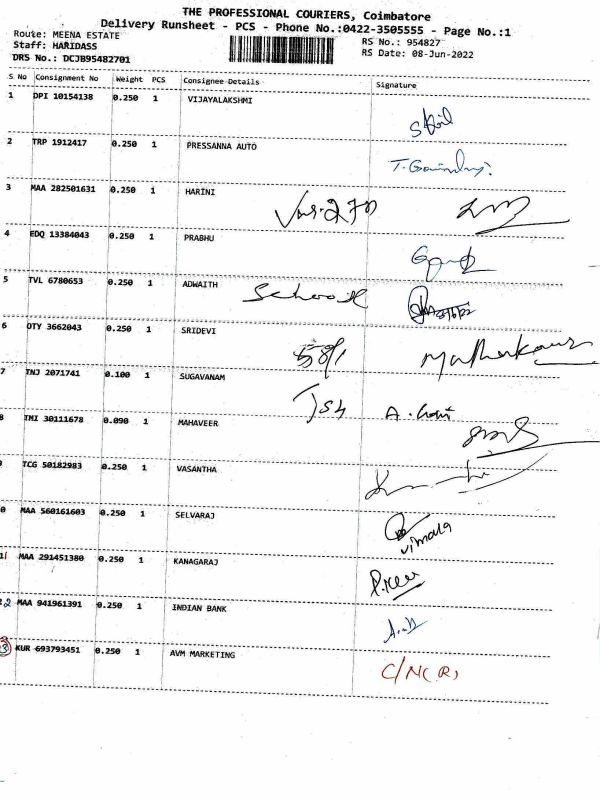 THE PROFESSIONAL COURIERS, Coimbatore
Delivery Runsheet - PCS - Phone No.:0422-3505555 - Page No.:1
Route: MEENA ESTATE
Staff: HARIDASS
DRS No.: DCJB95482701
RS No.: 954827
RS Date: 08-Jun-2022
S No Consignment No Weight PCS Consignee Details Signature
1 DPI 10154138 0.250 1 VIJAYALAKSHMI
2 TRP 1912417 0.250 1 PRESSANNA AUTO
3 MAA 282501631 0.250 1 HARINI
4 EDQ 13384043 0.250 1 PRABHU
5 TVL 6780653 0.250 1 ADWAITH School
6 OTY 3662043 0.250 1 SRIDEVI
7 TNJ 2071741 0.100 1 SUGAVANAM
8 TMI 30111678 0.090 1 MAHAVEER
TCG 50182983 0.250 1 VASANTHA
0 MAA 560161603 0.250 1 SELVARAJ Vimala
11 MAA 291451380 0.250 1 KANAGARAJ
2 MAA 941961391 0.250 1 INDIAN BANK
3 KUR 693793451 0.250 1 AVM MARKETING C/N(R)